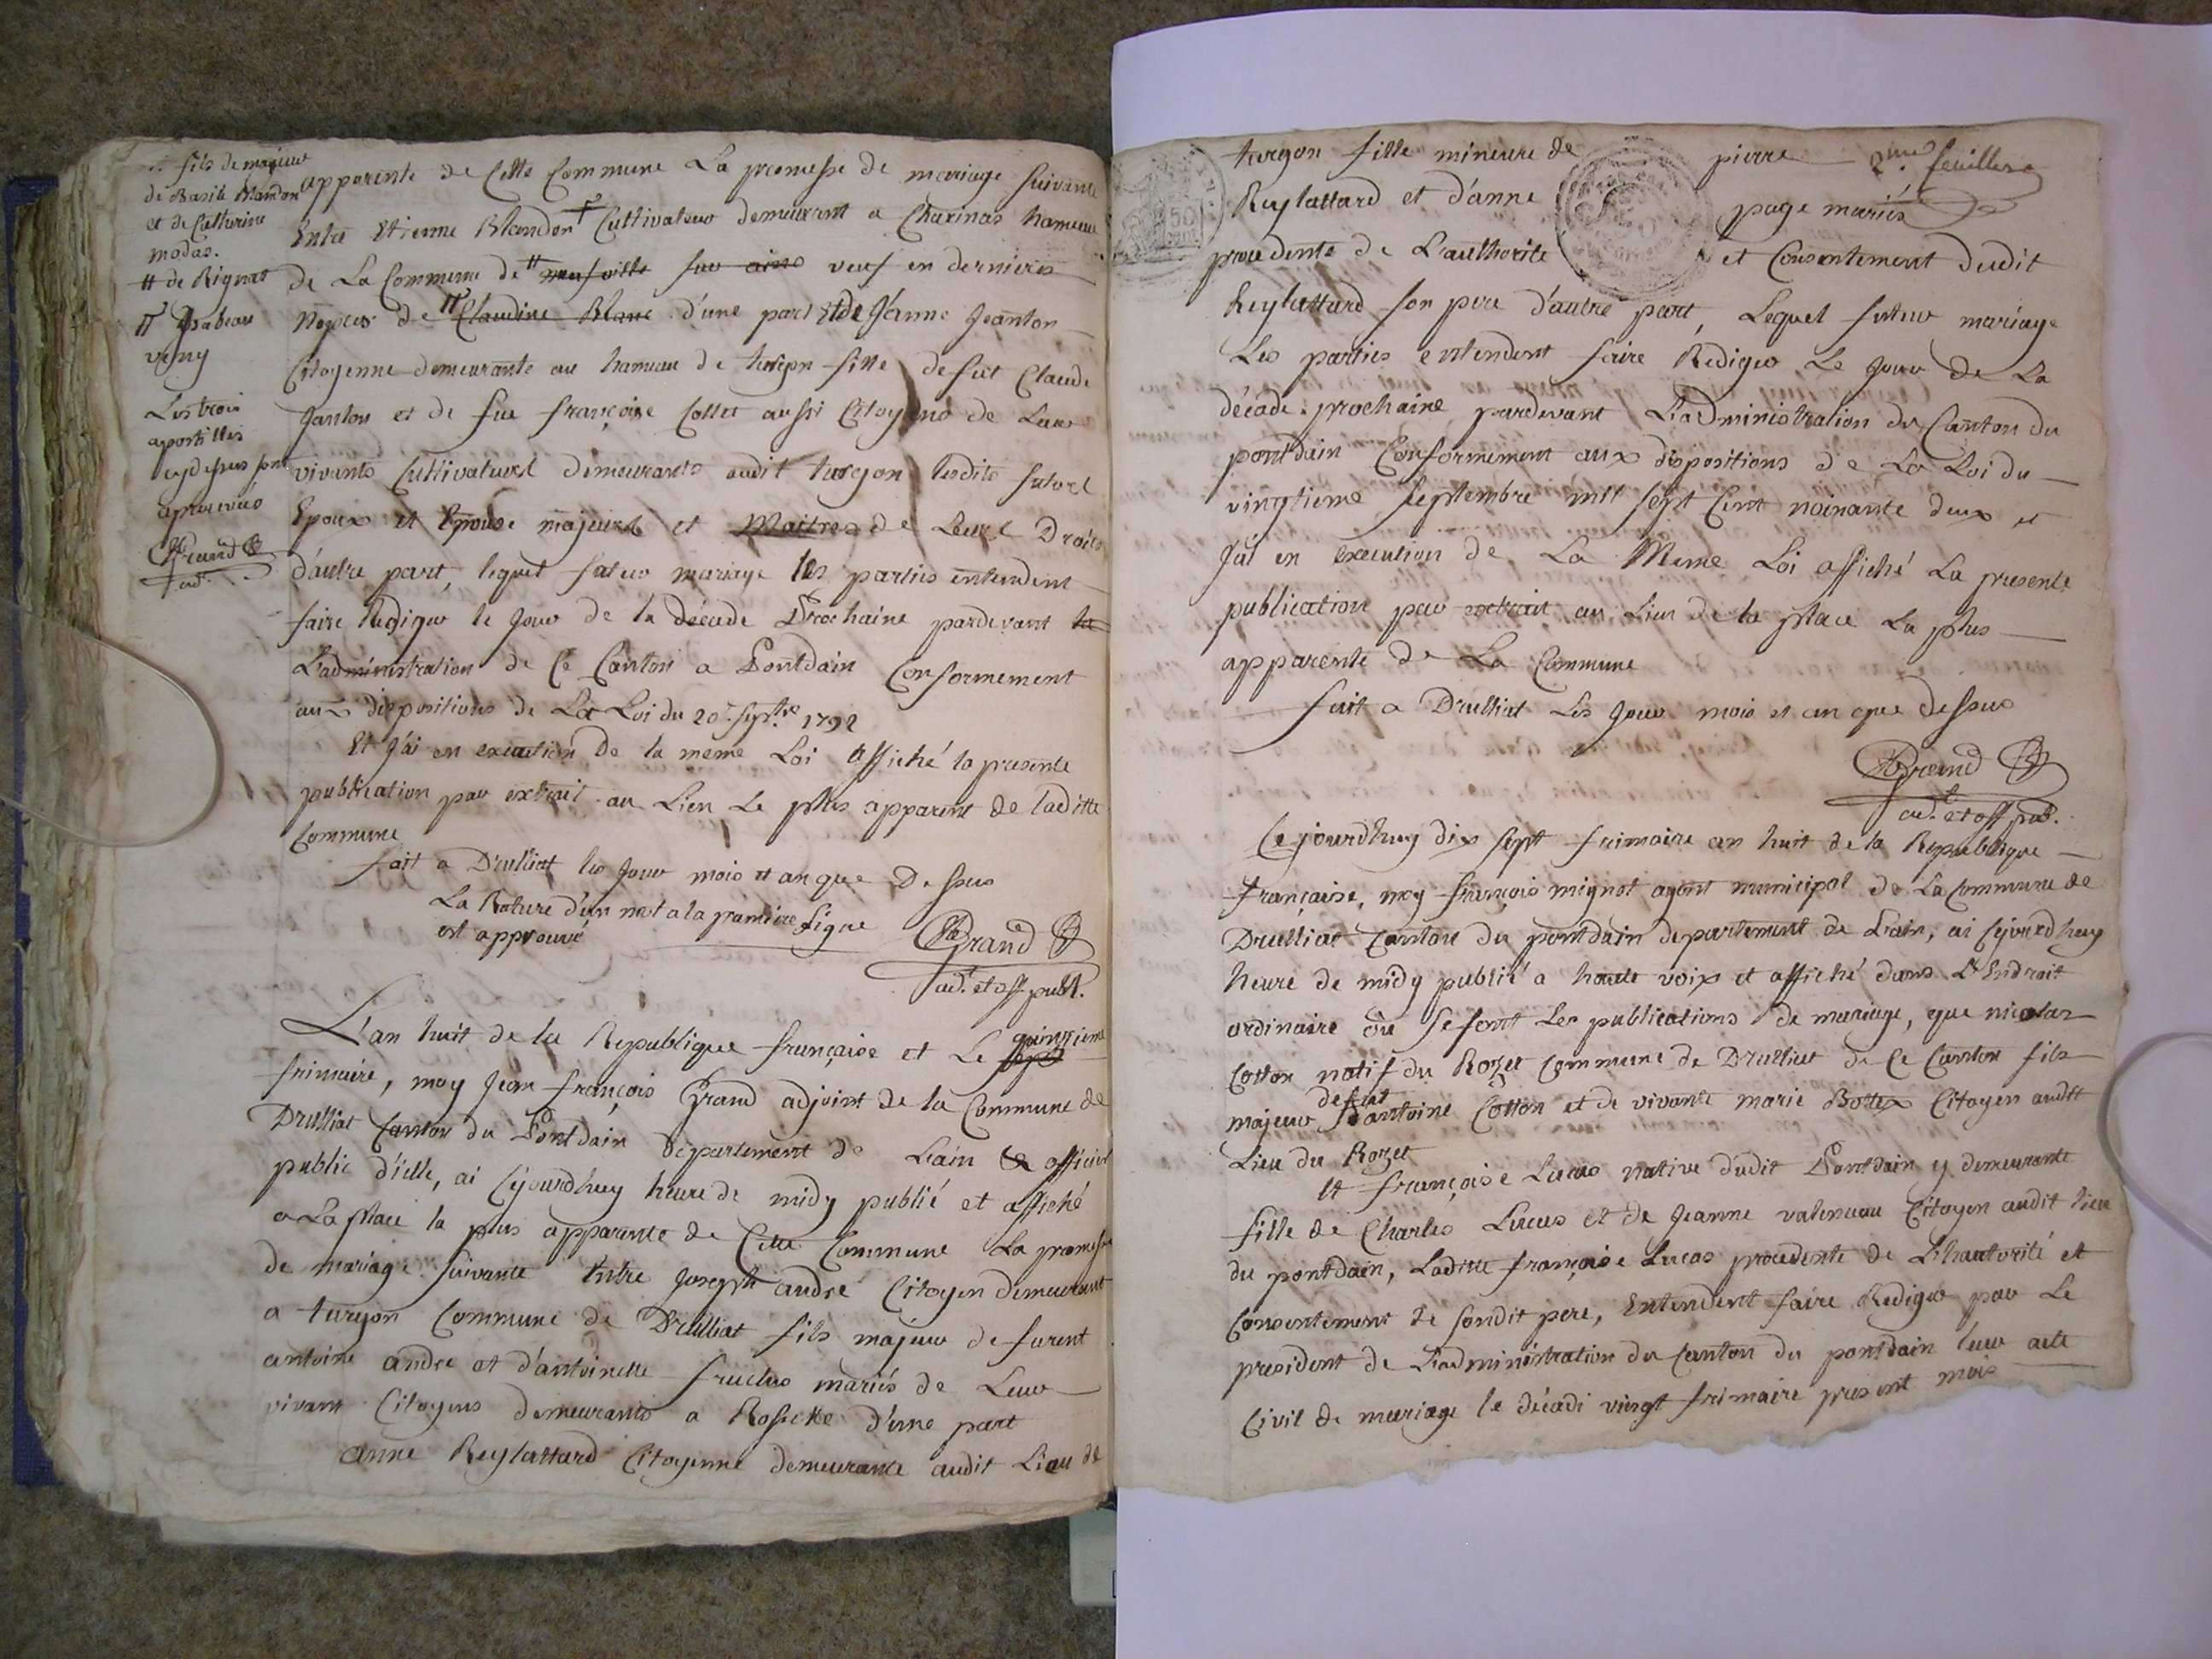 fils de majeur
de Basile Blandon
et de Catherine
modas.
# de Rignat
π Isabeau
veny
Les trois
apostilles
cy dessus sont
aprouvées
Grand
adt.
apparente de Cette Commune La promesse de mariage suivante
Entre Etienne Blandon Cultivateur demeurant a Charinas hameau
de La Commune de # neufville sur ains veuf en dernieres
Noces de π Claudine Blanc d'une part Et de Jeanne Jeanton
Citoyenne demeurante au hameau de turgon fille de fut Claude
Janton et de fue françoise Collet aussi Citoyens de Leur
vivants Cultivateurs demeurants audit turgon lesdits futurs
Epoux et Epouse majeurs et Maitres de Leurs Droits
d'autre part, lequel futur mariage les parties entendent
faire Rediger le Jour de la décade Prochaine pardevant la
L'administration de Ce Canton a Pontdain Conformement
aux dispositions de La Loi du 20e. Septbre 1792
Et J'ai en execution de la meme Loi affiché la presente
publication par extrait au Lieu Le plus apparent de laditte
Commune
fait a Druilliat les Jour mois et an que Dessus
La Rature d'un mot a la premiere Ligne
est approuvé
Grand
adt. et off publ.
L'an huit de la Republique française et Le sept quinzieme
frimaire, moy Jean françois Grand adjoint de la Commune de
Druilliat Canton du Pontdain département de Lain & officier
public d'ielle, ai Cejourdhuy heure de midy publié et affiché
a La place la plus apparente de Cette Commune La promesse
de mariage suivante Entre Joseph andré Citoyen demeurant
a turgon Commune de Druilliat fils majeur de furent
antoine andré et d'antoinette fruclus mariés de Leur
vivant Citoyens demeurants a Rossette d'une part
anne Reylattard Citoyenne demeurante audit Lieu de
turgon fille mineure de pierre 2me. feuillet
Reylattard et d'anne page mariés
procedente de L'authorité et Consentement dudit
Reylattard son pere d'autre part, Lequel futur mariage
Les parties entendent faire Rediger Le Jour de La
décade prochaine pardevant L'administration du Canton du
pontdain Conformement aux dispositions de La Loi du
vingtieme Septembre mil sept Cent nonante deux et
J'ai en execution de La Meme Loi affiché La presente
publication par extrait au Lieu de la place La plus
apparente de La Commune
fait a Druilliat Les Jour mois et an que dessus
Grand
adt. et off pub.
Cejourdhuy dix sept frimaire an huit de la Republique
française, moy françois mignot agent municipal de La Commune de
Druilliat Canton du pontdain departement de Lain, ai Cejourdhuy
heure de midy publié a haute voix et affiché dans L'Endroit
ordinaire où se font Les publications de mariage, que nicolas
Cotton natif du Rozet Commune de Druilliat de Ce Canton fils
majeur de fut antoine Cotton et de vivante marie Bottex Citoyen audit
Lieu du Rozet
et françoise Lucas native dudit Pontdain y demeurante
fille de Charles Lucas et de Jeanne valencau Citoyen audit lieu
du pontdain, Laditte françoise Lucas procedente de L'hautorité et
Consentement de Sondit pere, Entendent faire Rediger par Le
president de L'administration du Canton du pontdain leur acte
Civil de mariage le décadi vingt frimaire present mois